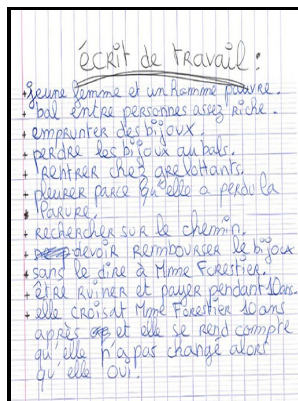 écrit de travail :
+ jeune femme et un homme pauvre.
+ bal entre personnes assez riche.
+ emprunter des bijoux.
+ perdre les bijoux au bals.
+ rentrer chez aux grelottants.
+ pleurer parce qu'elle a perdu la
parure.
+ rechercher sur le chemin.
+ devoir rembourser le bijoux
+ sans le dire à Mme Forestier.
+ être ruiner et payer pendant 10 ans.
+ elle croisait Mme Forestier 10 ans
après et elle se rend compte
qu'elle n'a pas changé alors
qu'elle oui.